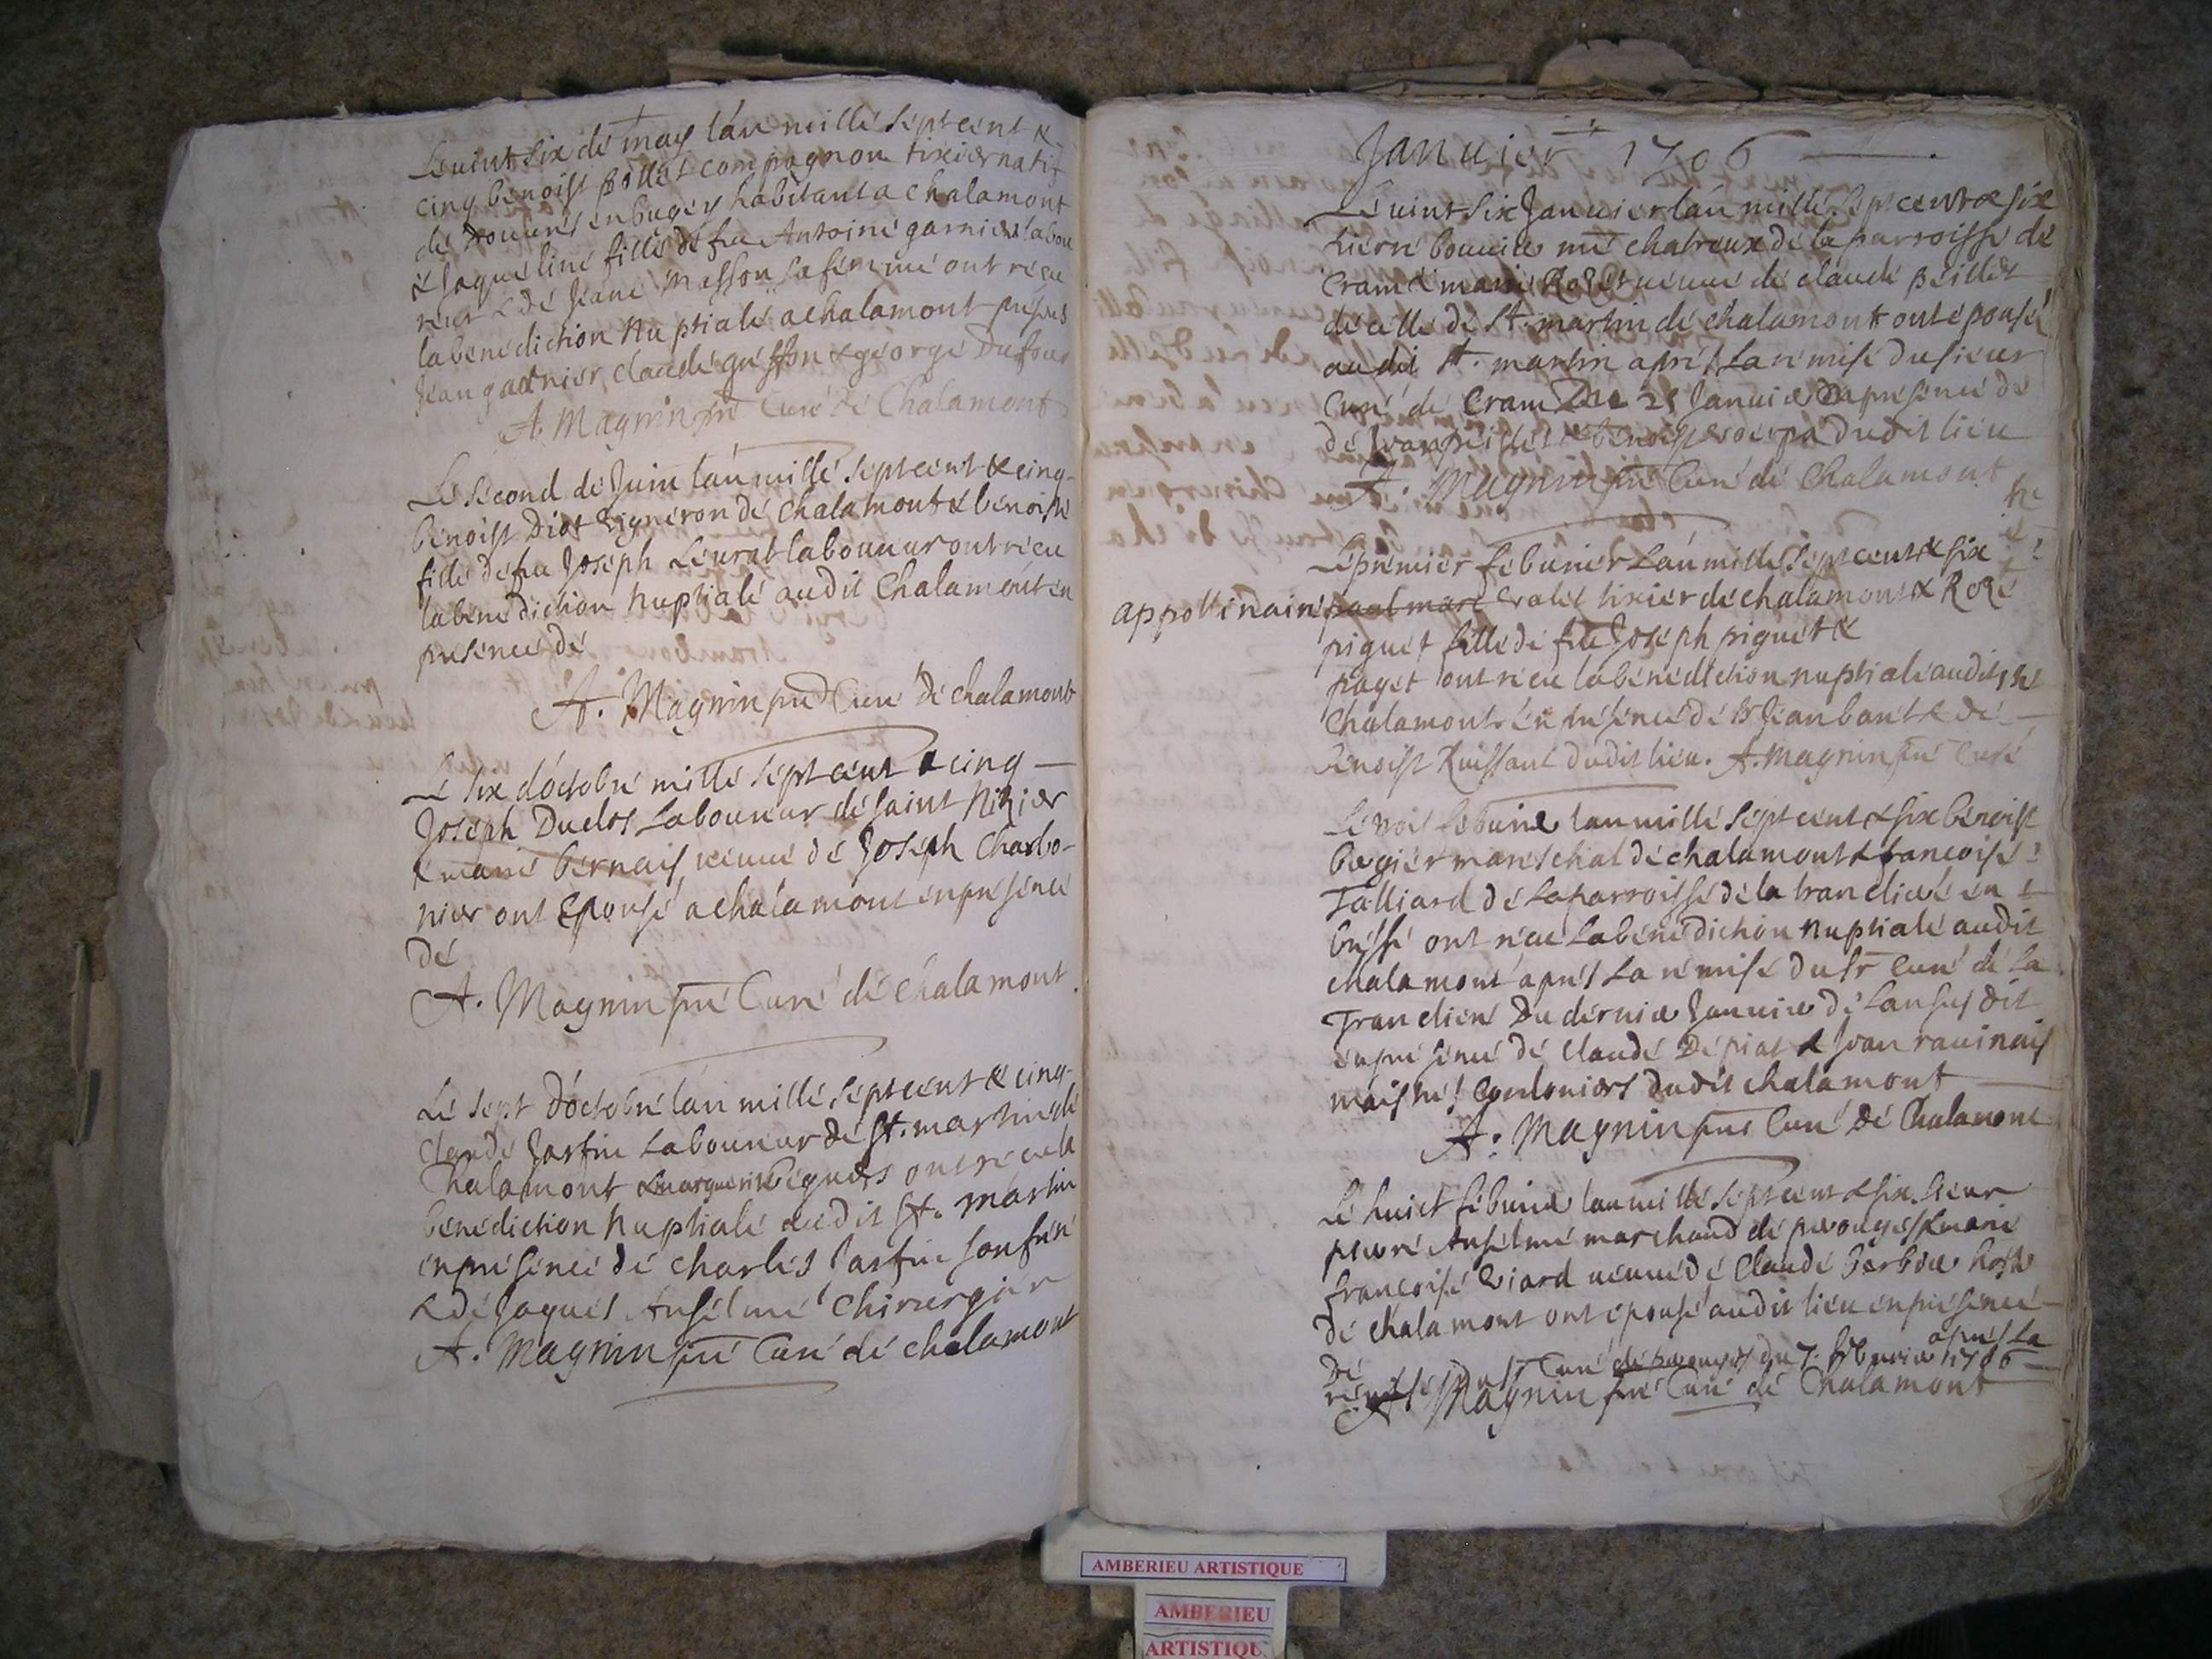 Le uint six de may l'an mille sept cent &
cinq benoist pollet compagnon tixier natif
de en bugey habitant a chalamont
& Jaqueline fille de feu Antoine garnier labou
reur & de Jeane Masson sa femme ont reçu
la benediction nuptiale a chalamont présens
Jean garnier, claude guesson & george Dufour
A. Magnin pre Curé de Chalamont
Le second de Juin l'an mille sept cent & cinq
benoist Diot vigneron de chalamont & benoiste
fille de feu Joseph Leurat laboureur ont reçu
la benediction nuptiale audit Chalamont en
presence de
A. Magnin pre Curé de chalamont
Le six d'octobre mille sept cent & cinq
Joseph Duclos Laboureur de saint Nizier
& marie bernais veuue de Joseph Charbo-
nier ont epousé a chalamont en presence
de
A. Magnin pre Curé de chalamont
Le sept d'octobre l'an mille sept cent & cinq
claude Jarfin Laboureur de St. martin de
Chalamont & marguerite ont reçu la
benediction nuptiale audit St. martin
en presence de charles Jarfin son frere
& de Jaques Anselme chirurgien
A. Magnin pre Curé de chalamont
Januier 1706
Le uint six Januier l'an mille sept cent & six
bouuier de la parroisse de
Cram & marie veuue de claude peillet
de celle de St. martin de chalamont ont epousé
audit St. martin aprés la remise du sieur
Curé de Cram Januier en presence de
de Jean peillet & benoist dudit lieu
A. Magnin pre Curé de Chalamont
Le premier febvrier l'an mille sept cent & six
appollinaire paul marc tixier de chalamont & Roze
piguet fille de feu Joseph piguet &
paget ont reçu la benediction nuptiale audit
Chalamont en presence de Sr Jean bant & de
benoist Ruissant dudit lieu. A. Magnin pre Curé
Le trois febvrier l'an mille sept cent & six benoist
bergier mareschal de chalamont & francoise
Talliard de la parroisse de la trancliere en
bresse ont reçu la benediction nuptiale audit
chalamont aprés la remise du Sr Curé de la
Trancliere du dernier Januier de l'an sus dit
en presence de claude Depiat & Jean rauinais
maistres cordoniers dudit chalamont
A. Magnin pre Curé de Chalamont
Le huict febvrier l'an mille sept cent & six sieur
pierre Anselme marchand de perouges & marie
francoise viard veuue de Claude barbier hoste
de chalamont ont epousé audit lieu en presence
de aprés la
remise du Sr Curé de perouges du 7. febvrier 1706
A. Magnin pre Curé de Chalamont
AMBERIEU ARTISTIQUE
AMBERIEU
ARTISTIQU